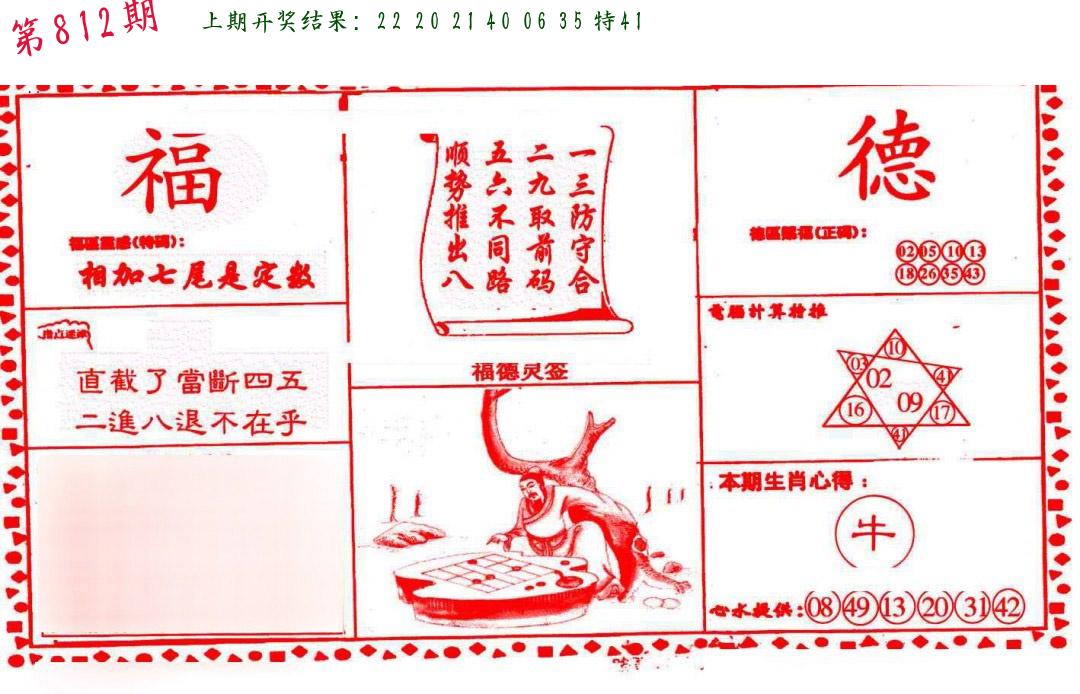 第812期
上期开奖结果：22 20 21 40 06 35 特41
福
福區靈感(特碼)：
相加七尾是定数
指点迷津
直截了當斷四五
二進八退不在乎
一三防守合
二九取前码
五六不同路
顺势推出八
福德灵签
德
德區賜福(正碼)：
02 05 10 13
18 26 35 43
電腦計算精推
10
03 02 41
16 09 17
41
本期生肖心得：
牛
心水提供：08 49 13 20 31 42